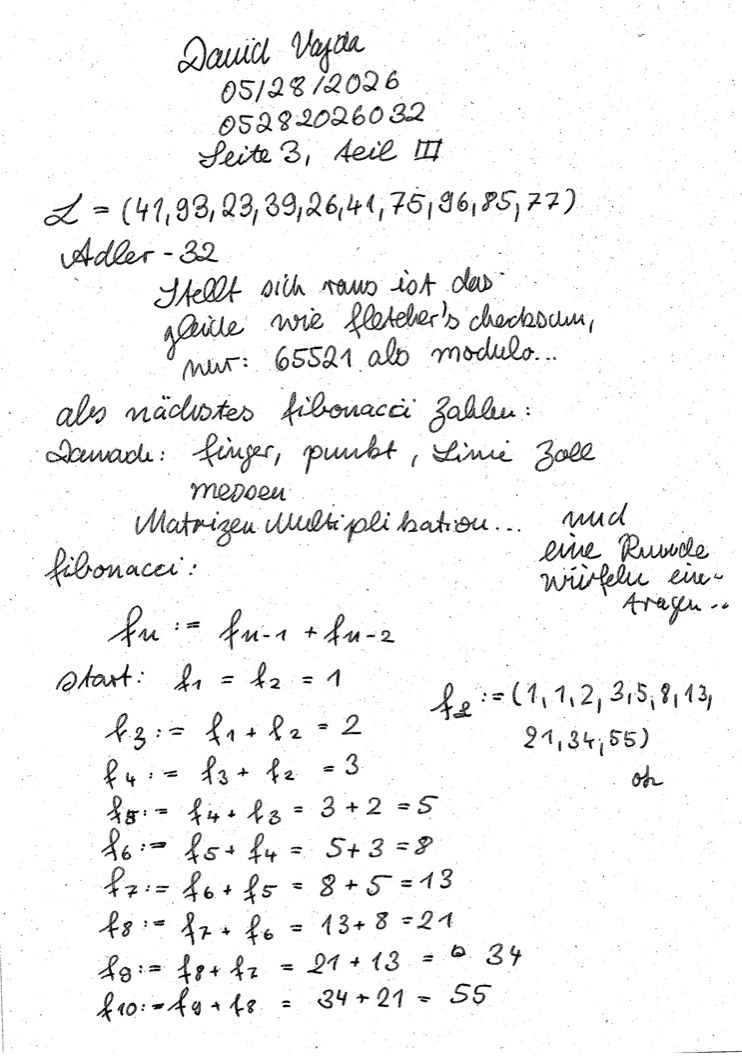 David Vajda
05/28/2026
05282026032
Seite 3, Teil III
L = (41,93,23,39,26,41,75,96,85,77)
Adler-32
Stellt sich raus ist das
gleiche wie fletcher's checksum,
nur: 65521 als modulo...
als nächstes fibonacci Zahlen:
Danach: finger, punkt, Linie Zoll
messen
Matrizen Multiplikation... und
eine Runde
würfeln ein-
tragen..
fibonacci:
fn := fn-1 + fn-2
start: f1 = f2 = 1
f3 := f1 + f2 = 2
f4 := f3 + f2 = 3
f5 := f4 + f3 = 3 + 2 = 5
f6 := f5 + f4 = 5+3 = 8
f7 := f6 + f5 = 8 + 5 = 13
f8 := f7 + f6 = 13+8 = 21
f9 := f8 + f7 = 21 + 13 = 34
f10 := f9 + f8 = 34 + 21 = 55
:= (1,1,2,3,5,8,13,
21,34,55)